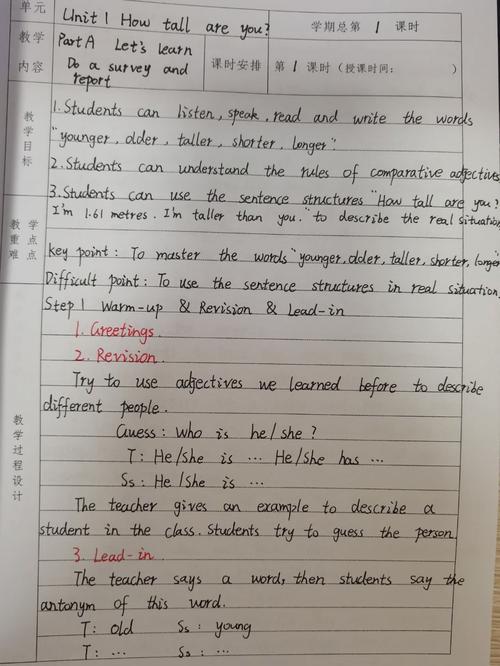 单元 Unit 1 How tall are you? 学期总第 1 课时
教学内容 Part A Let's learn Do a survey and report 课时安排 第 1 课时 (授课时间: )
教学目标
1. Students can listen, speak, read and write the words
"younger, older, taller, shorter, longer"
2. Students can understand the rules of comparative adjectives
3. Students can use the sentence structures "How tall are you?
I'm 1.61 metres. I'm taller than you." to describe the real situation
教学重点难点
key point: To master the words "younger, older, taller, shorter, longer
Difficult point: To use the sentence structures in real situation.
教学过程设计
Step 1 Warm-up & Revision & Lead-in
1. Greetings.
2. Revision.
Try to use adjectives we learned before to describe
different people.
Guess: Who is he/she?
T: He/she is ... He/she has ...
Ss: He/she is ...
The teacher gives an example to describe a
student in the class. Students try to guess the person.
3. Lead-in.
The teacher says a word, then students say the
antonym of this word.
T: old Ss: young
T: ... Ss: ...